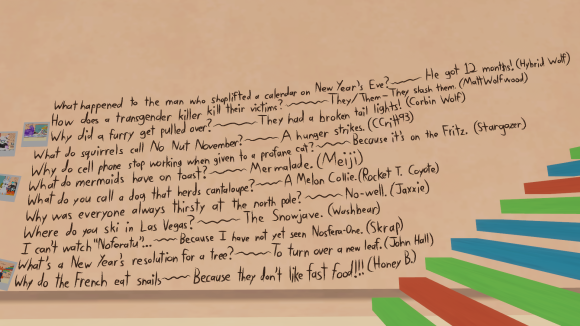 What happened to the man who shoplifted a calendar on New Year's Eve?~~~ He got 12 months! (Hybrid Wolf)
How does a transgender killer kill their victims?~~~ They/Them~ They slash them. (MattWolfwood)
Why did a furry get pulled over?~~~ They had a broken tail lights! (Corbin Wolf)
What do squirrels call No Nut November?~~~ A hunger strikes. (CCrit93)
Why do cell phone stop working when given to a profane cat?~~~ Because it's on the Fritz. (Stargazer)
What do mermaids have on toast?~~~ Mermalade. (Meiji)
What do you call a dog that herds cantaloupe?~~~ A Melon Collie. (Rocket T. Coyote)
Why was everyone always thirsty at the north pole?~~~ No-well. (Jaxxie)
Where do you ski in Las Vegas?~~~ The Snojave. (Washbear)
I can't watch "Noferatu"...~~~ Because I have not yet seen Nosfera-One. (Skrap)
What's a New Year's resolution for a tree?~~~ To turn over a new leaf. (John Hall)
Why do the French eat snails~~~ Because they don't like fast food!!! (Honey B.)